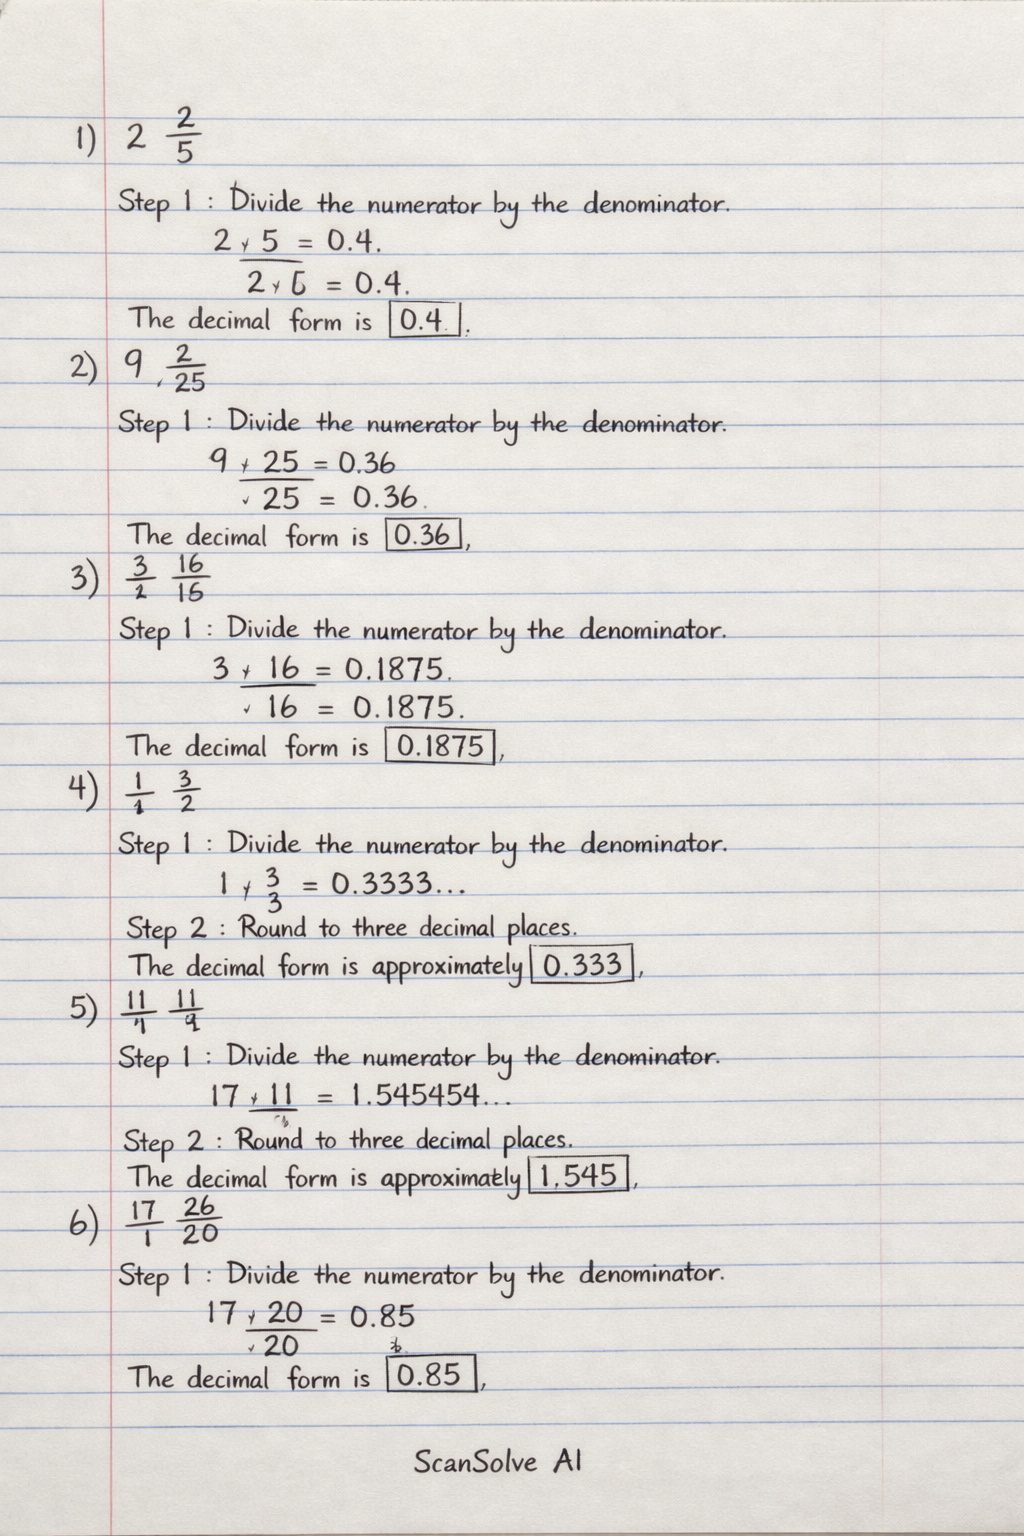 1) 2 2/5
Step 1 : Divide the numerator by the denominator.
2 ÷ 5 = 0.4.
2 ÷ 5 = 0.4.
The decimal form is 0.4.
2) 9 2/25
Step 1 : Divide the numerator by the denominator.
9 ÷ 25 = 0.36
25 = 0.36.
The decimal form is 0.36,
3) 3/2 16/16
Step 1 : Divide the numerator by the denominator.
3 ÷ 16 = 0.1875.
16 = 0.1875.
The decimal form is 0.1875,
4) 1/1 3/2
Step 1 : Divide the numerator by the denominator.
1 ÷ 3/3 = 0.3333...
Step 2 : Round to three decimal places.
The decimal form is approximately 0.333,
5) 11/4 11/9
Step 1 : Divide the numerator by the denominator.
17 ÷ 11 = 1.545454...
Step 2 : Round to three decimal places.
The decimal form is approximately 1,545,
6) 17/1 26/20
Step 1 : Divide the numerator by the denominator.
17 ÷ 20 = 0.85
20
The decimal form is 0.85,
ScanSolve AI